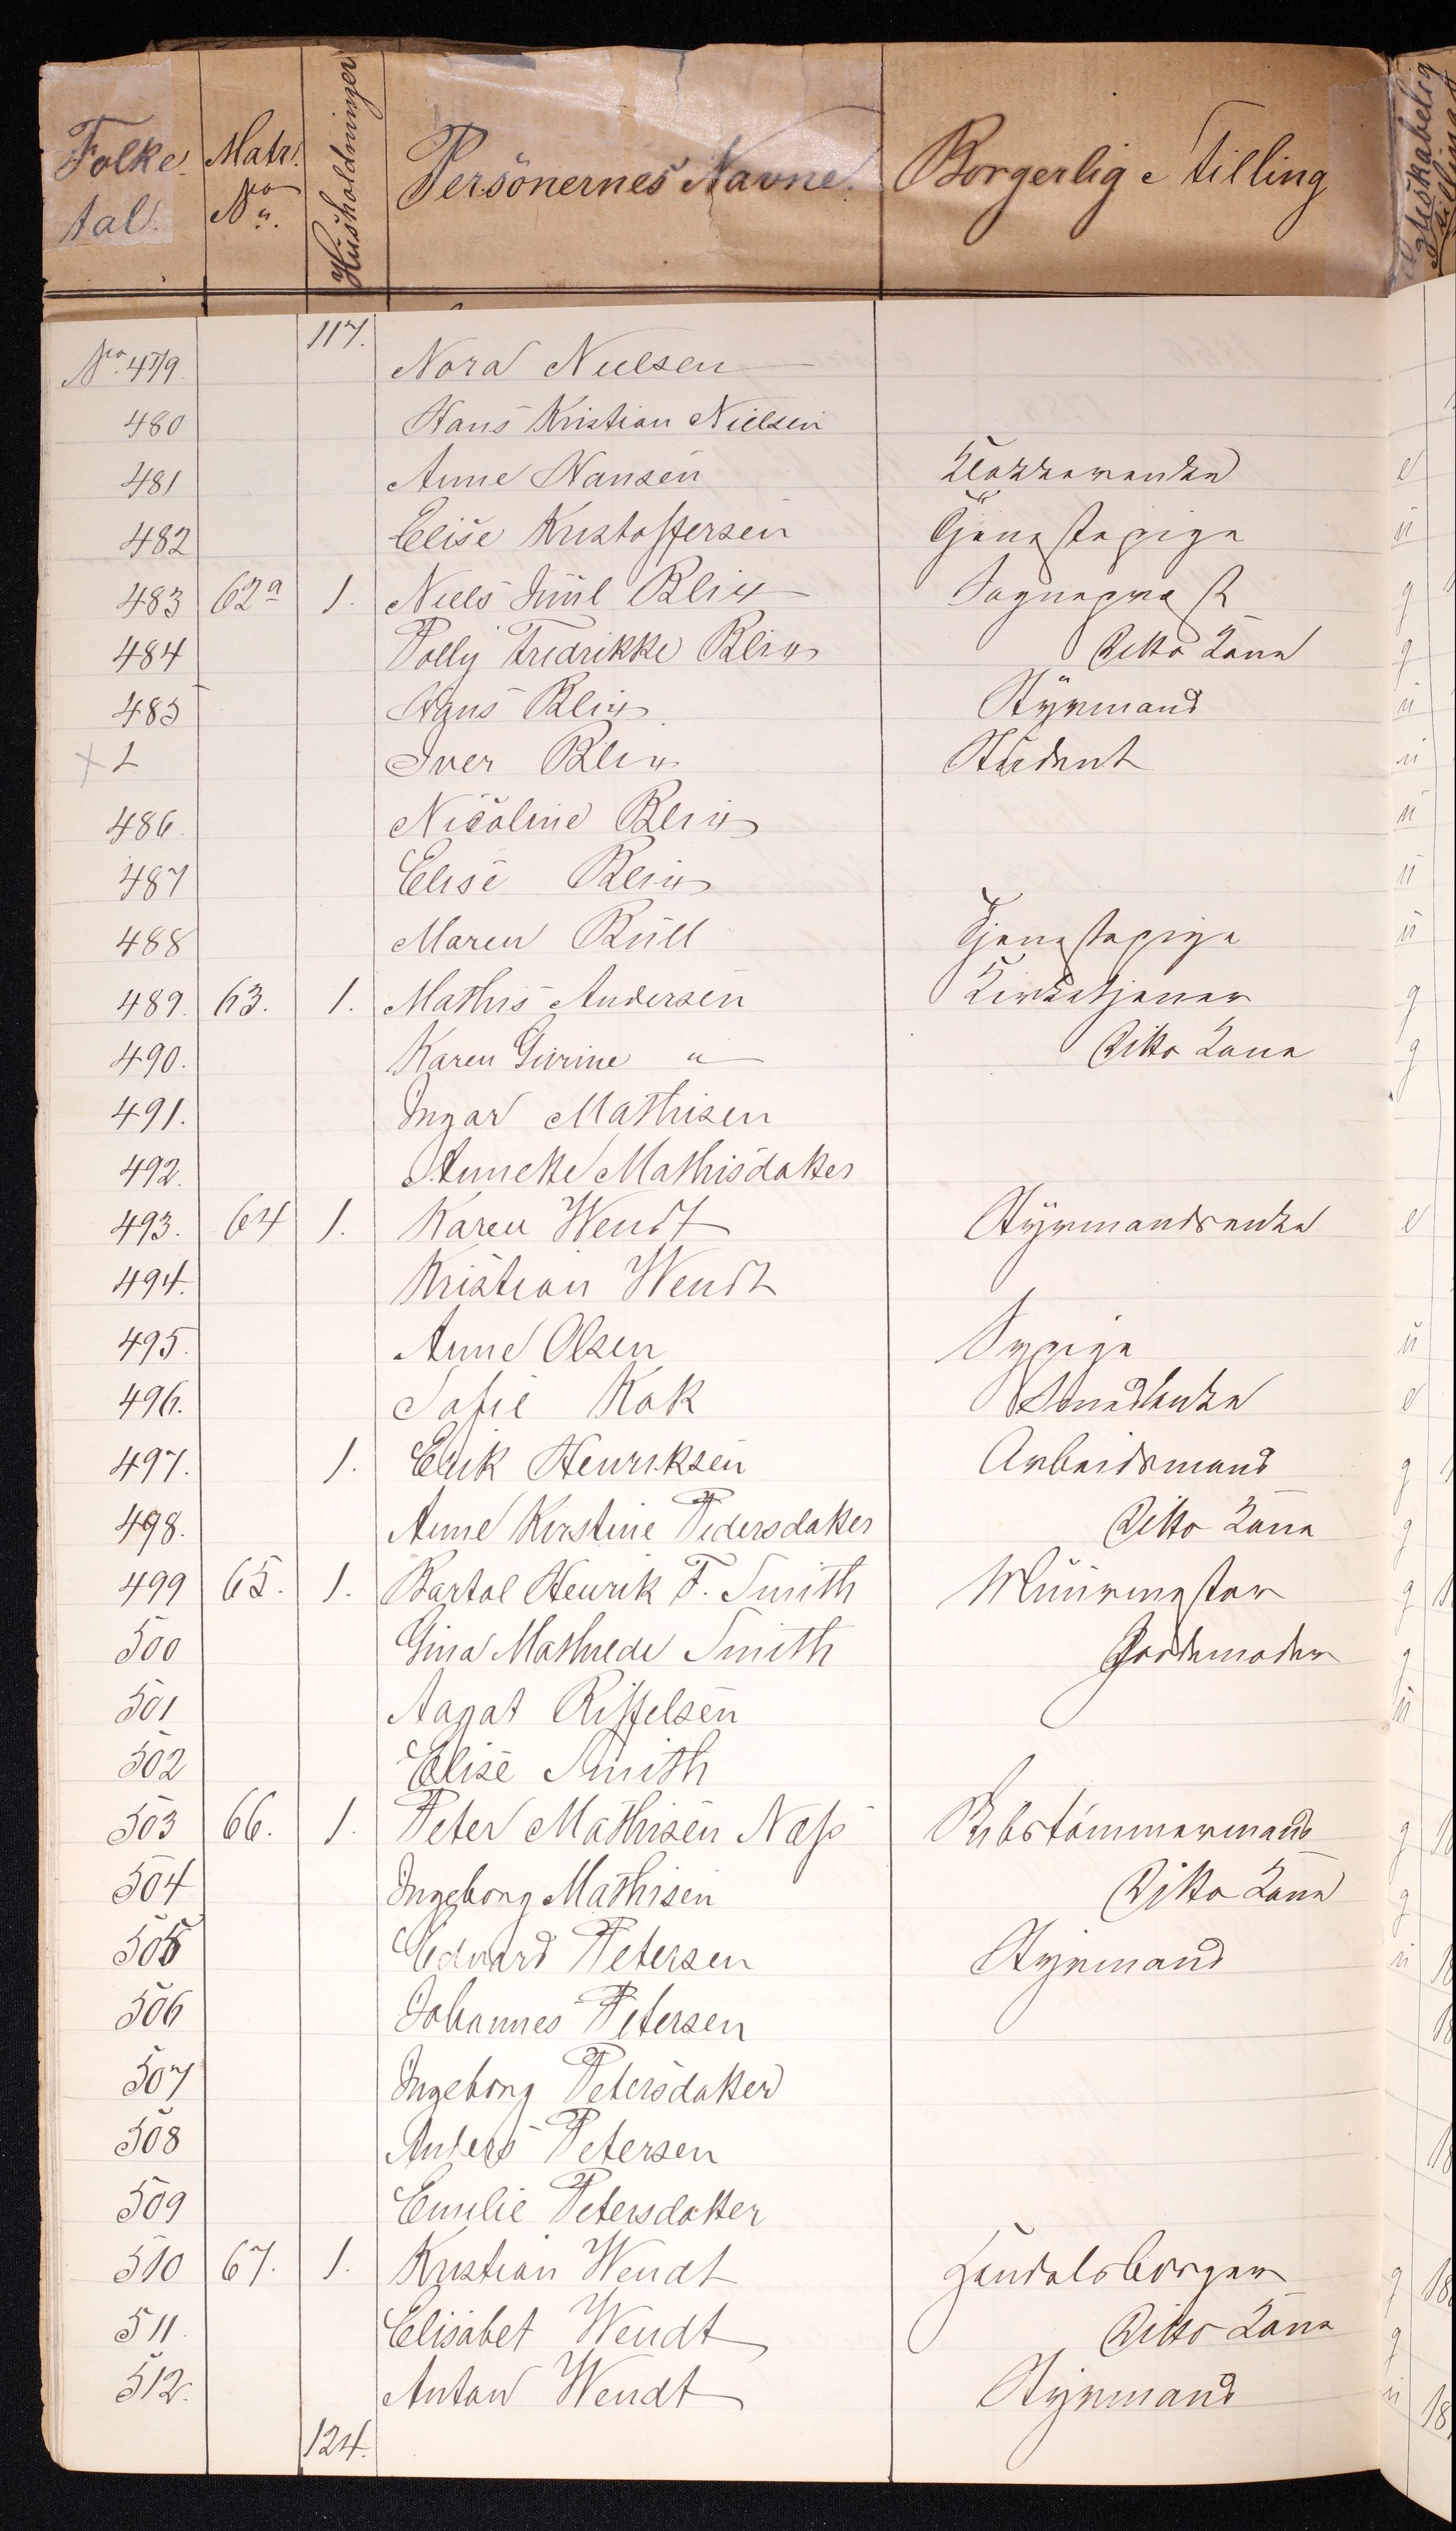 Folketal. Matr. No. Husholdninger Personernes Navne. Borgerlig Stilling Ægteskabelig
117.
No. 479 Nora Nielsen
480 Hans Kristian Nielsen
481 Anne Hansen Klokkerenke e
482 Elise Kristoffersen Tjenestepige ü
483 62a 1. Niels Juul Blix Sognepræst g
484 Polly Fredrikke Blix Ditto Kone g
485 Hans Blix Styrmand ü
+ L Iver Blix Student ü
486. Nicoline Blix ü
487 Elise Blix ü
488 Maren Büll Tjenestepige ü
489. 63. 1. Mathis Andersen Kirketjener g
490. Karen Gurine " Ditto Kone g
491. Ingar Mathisen
492. Annette Mathisdatter
493. 64 1. Karen Wendt Styrmandsenke e
494. Kristian Wendt
495. Anne Olsen Sypige ü
496. Sofie Kok Smedenke e
497. 1. Erik Henriksen Arbeidsmand g
498. Anne Kirstine Pedersdatter Ditto Kone g
499 65. 1. Bartol Henrik F. Smith Muurmester g
500 Gina Mathilde Smith Jordemoder g
501 Aagat Riffelsen ü
502 Elise Smith
503 66. 1. Peter Mathisen Næss Skibstømmermand g
504 Ingeborg Mathisen Ditto Kone g
505 Edvard Petersen Styrmand ü
506 Johannes Petersen
507 Ingeborg Petersdatter
508 Anders Petersen
509 Emilie Petersdatter
510 67. 1. Kristian Wendt Handelsborger g 18
511. Elisabet Wendt Ditto Kone g
512. Anton Wendt Styrmand ü 18
124.